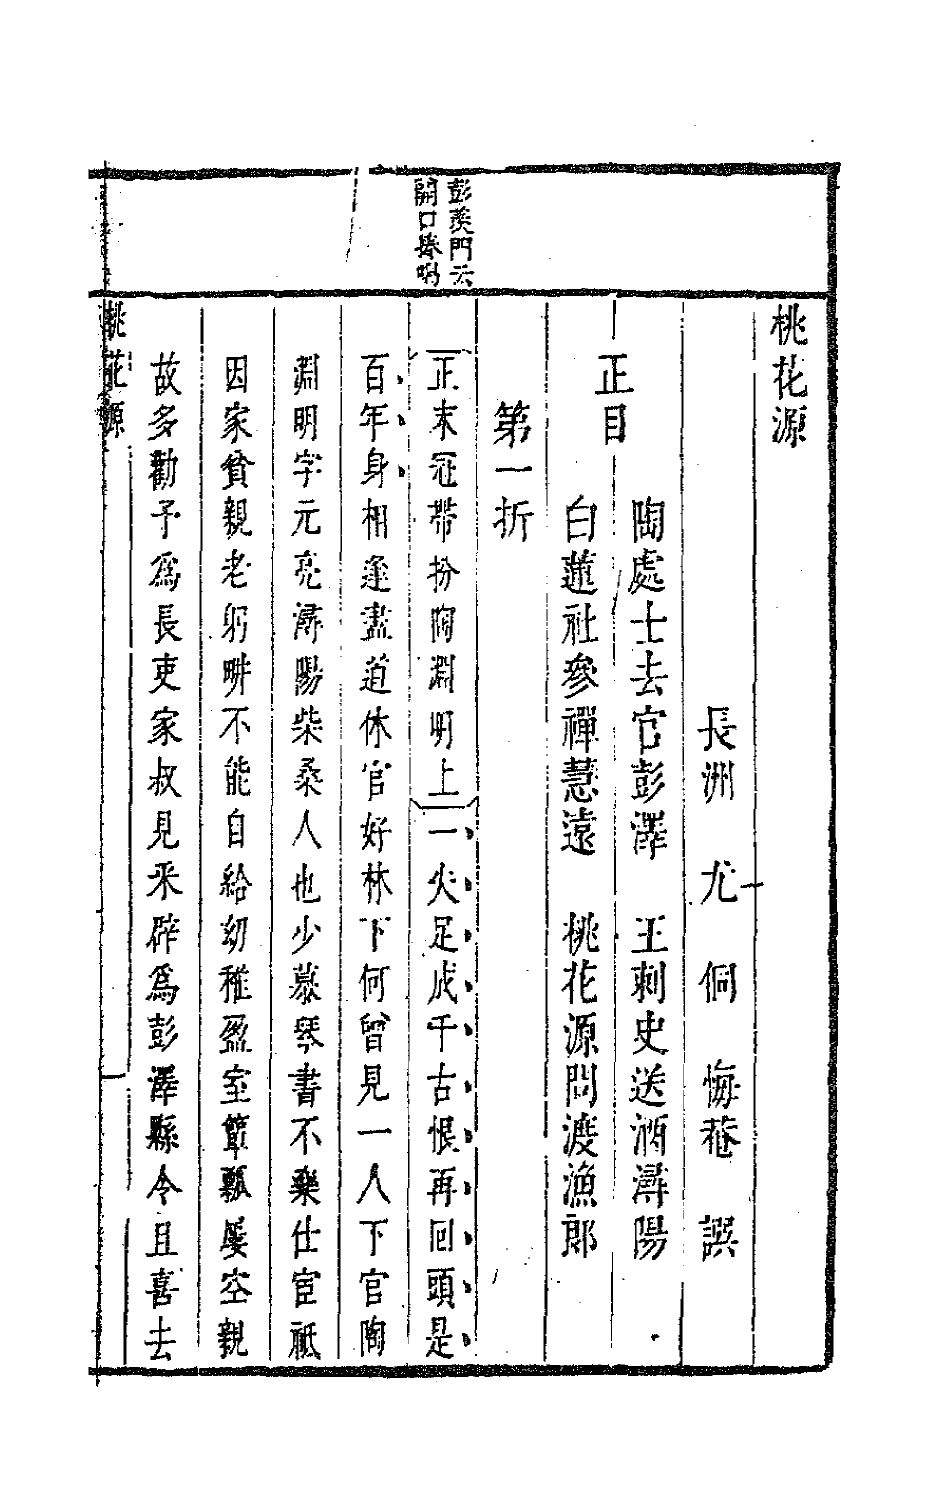 彭羨門云
開口捧喝
桃花源
長洲 尤 侗 悔菴 譔
正目
陶處士去官彭澤 王刺史送酒潯陽
白蓮社參禪慧遠 桃花源問渡漁郎
第一折
正末冠帶扮陶淵明上一失足成千古恨再回頭是
百年身相逢盡道休官好林下何曾見一人下官陶
淵明字元亮潯陽柴桑人也少慕琴書不樂仕宦祗
因家貧親老躬畊不能自給幼稚盈室簞瓢屢空親
故多勸予爲長吏家叔見采辟爲彭澤縣令且喜去
桃花源